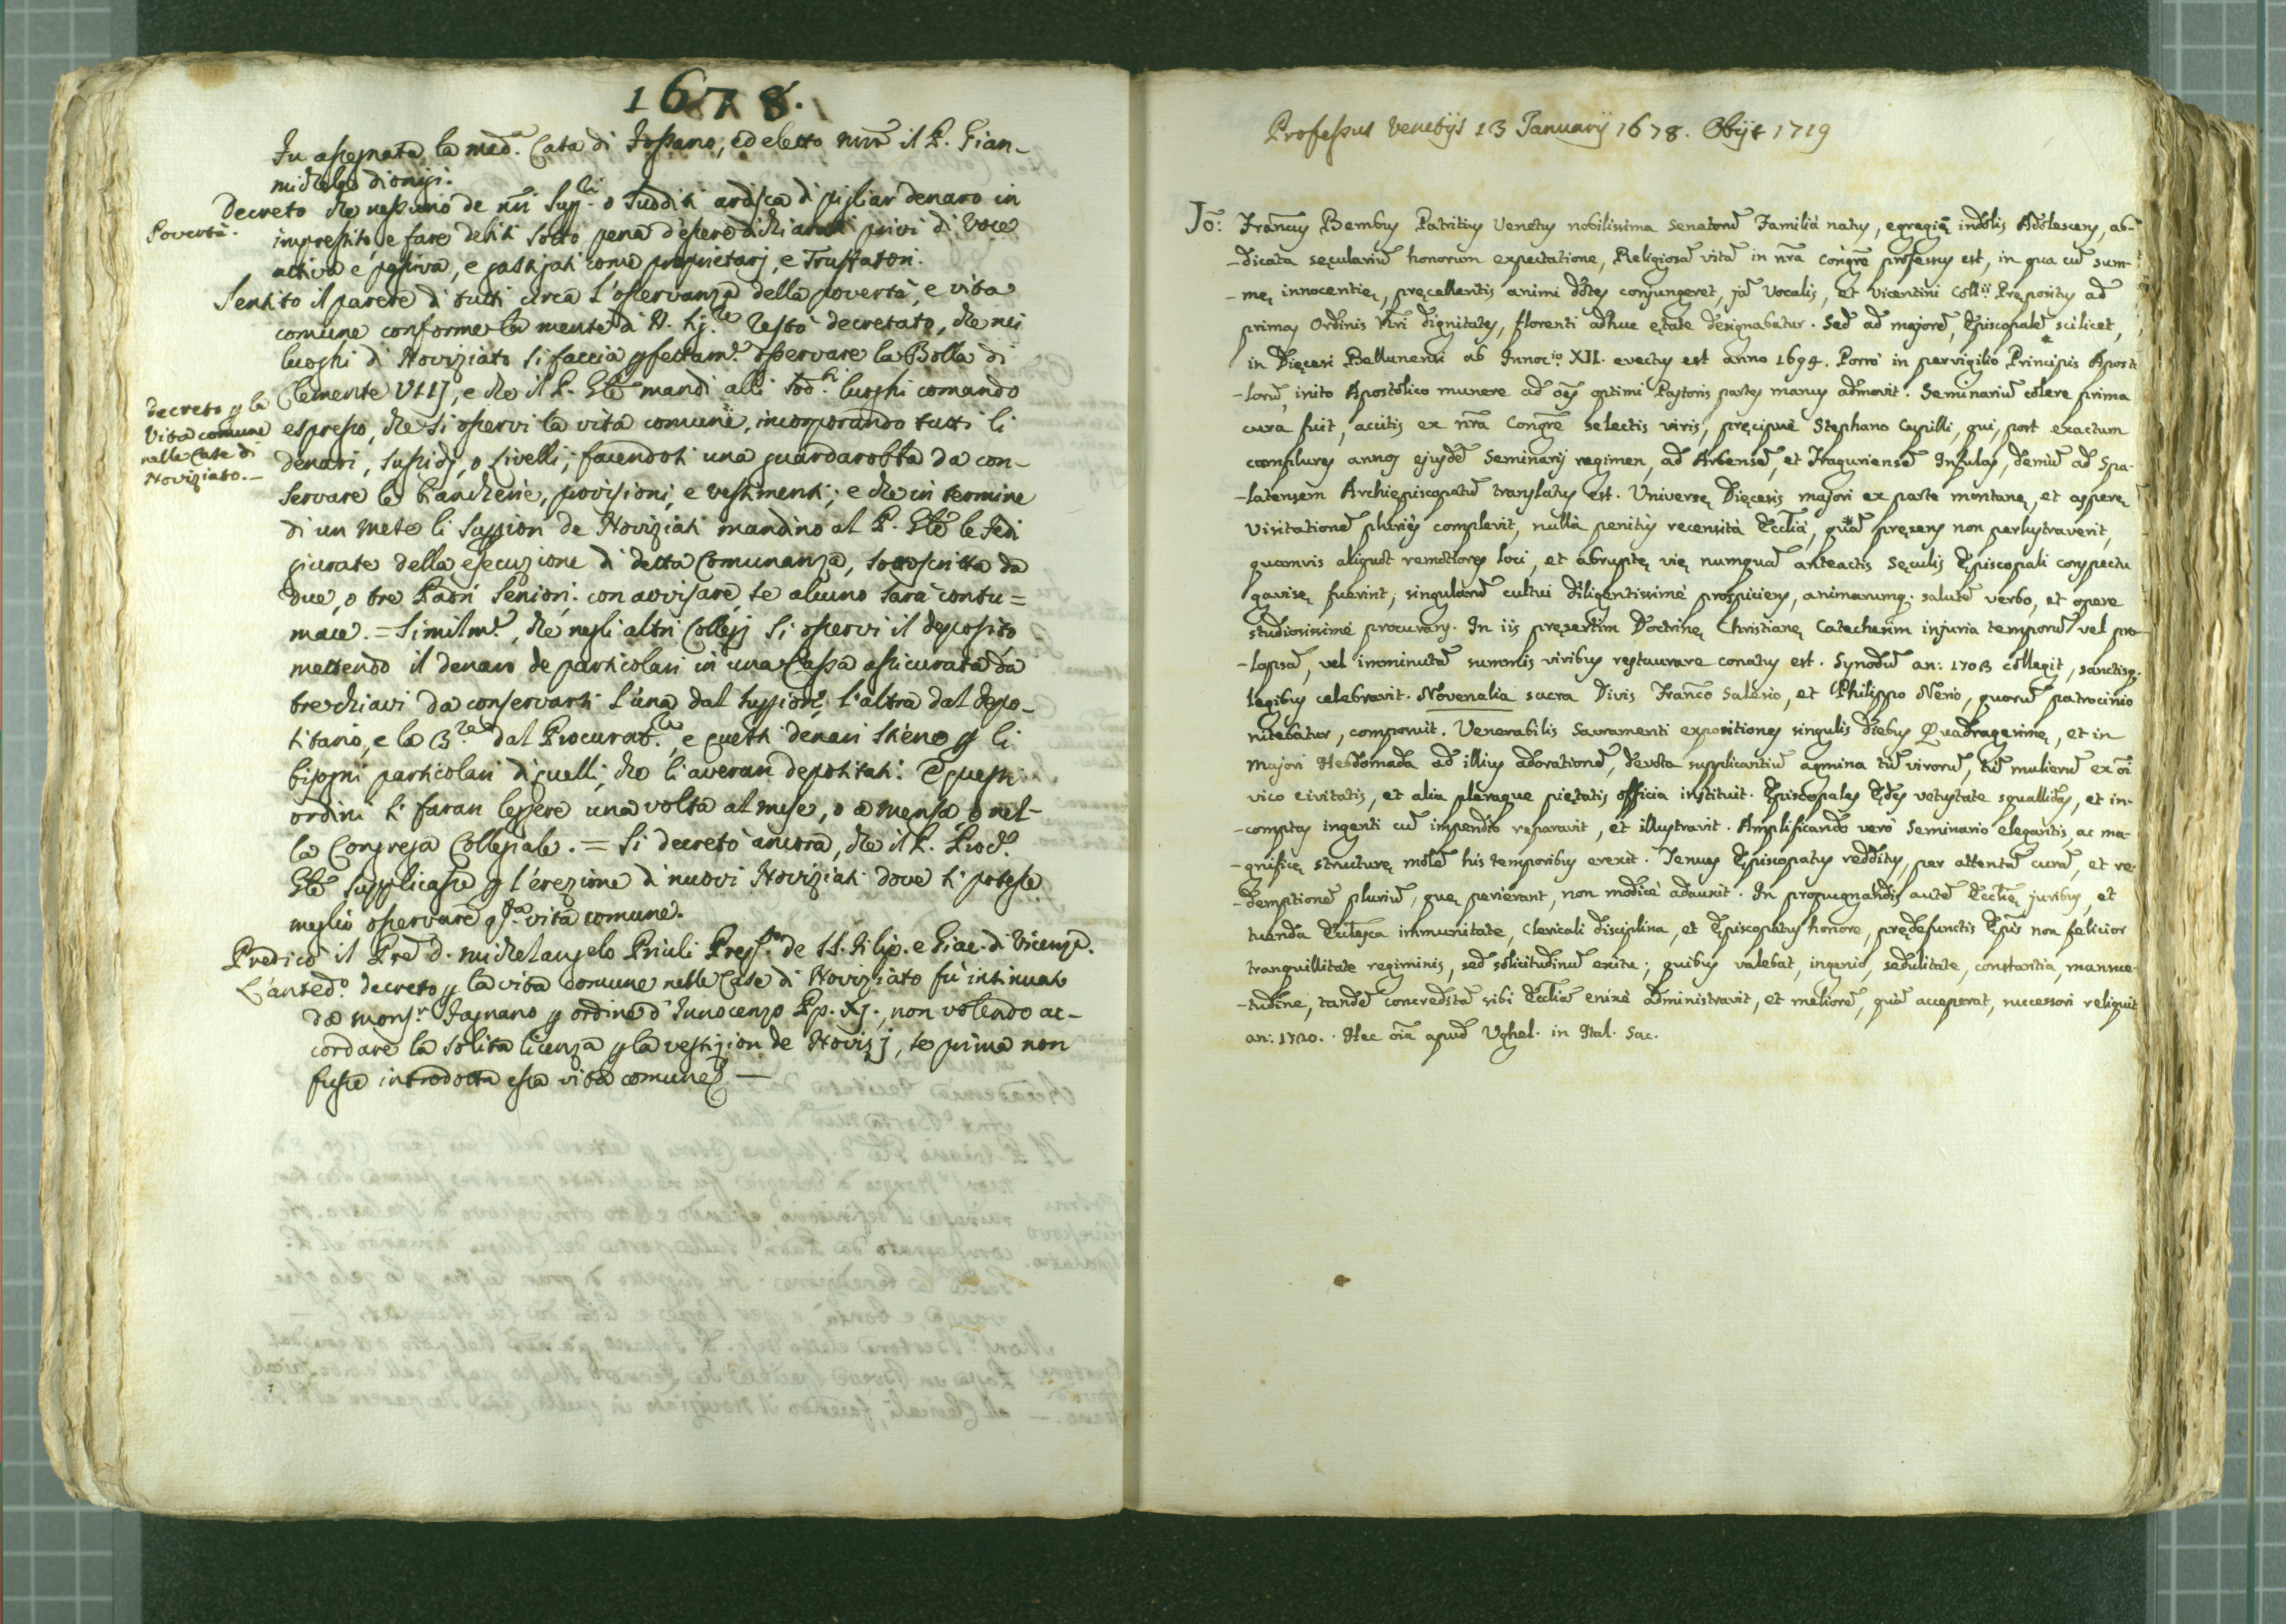 1678.
Fu assegnata la med.ª Casa di Fossano, ed eletto nrõ il P. Gian-
michele Dionigi.
Decreto che nessuno de nrĩ Supp.ri o sudditi ardisca di pigliar denaro in
Povertà.
imprestito, e fare debiti sotto pena d'essere dichiarati privi di voce
attiva e passiva, e gastigati come proprietarj, e Truffatori.
Sentito il parere di tutti circa l'osservanza della povertà, e vita
comune conforme la mente di N. Sig.re restò decretato, che nei
luoghi di Noviziato si faccia pfettam.e osservare la Bolla di
Clemente VIIJ, e che il P. Gñle mandi alli sod.ti luoghi comando
decreto p la
Vita comune
nelle Case di
Noviziato.—
espresso, che si osservi la vita comune, incorporando tutti li
denari, sussidj, o Livelli; facendosi una guardarobba da con-
servare le biancherie, provisioni, e vestimenti; e che in termine
di un mese li Superiori de Noviziati mandino al P. Gñle le fedi
giurate della esecuzione di detta Comunanza, sottoscritta da
due, o tre Padri Seniori. con avvisare se alcuno sarà contu=
mace. = Similm.e, che negli altri Collegj si osservi il deposito
mettendo il denaro de particolari in una Cassa assicurata da
tre chiavi da conservarsi l'una dal Superiore, l'altra dal depo-
sitario, e la 3.za dal Procurat.re, e questi denari siéno p li
bisogni particolari di quelli, che li averan depositati. E questi
ordini si faran leggere una volta al mese, o a mensa o nel-
la Congrega Collegiale. = Si decretò ancora, che il P. Proc.e
Gñle supplicasse p l'erezione di nuovi Noviziati dove si potesse
meglio osservare q.sta vita comune.
Predicò il Prẽ D. Michelangelo Priuli Prep.to de SS. Filip. e Giac. di Vicenza.
L'anted.o decreto p la vita comune nelle Case di Noviziato fù intimato
da Mons.r Fagnano p ordine d'Innocenzo Pp. XJ., non volendo ac-
cordare la solita licenza p la vestizion de Novizj, se prima non
fusse introdotta essa vita comune. —
Professus Venetijs 13 Januarij 1678. Obijt 1719
Jo: Francus Bembus Patritius Venetus nobilissima Senatorũ Familia natus, egregię indolis Adolescens, ab-
-dicata sęcularium honorum expectatione, Religiosã vitã in nrã Congrẽ professus est, in qua cũ sum-
-mę innocentię, pręcellentis animi dotes conjungeret, jã Vocalis, et Vicentini Coll.ii Prępositus ad
primas Ordinis Nrĩ dignitates, florenti adhuc ętate designabatur. Sed ad majorẽ, Episcopalẽ scilicet,
in Dięcesi Bellunensi ab Innoc.io XII. evectus est anno 1694. Porrò in pervigilio Principis Aposto
-lorũ, inito Apostolico munere ad oẽs optimi Pastoris partes manus admovit. Seminariũ colere prima
cura fuit, accitis ex nrã Congrẽ selectis viris, pręcipuè Stephano Cupilli, qui, post exactum
complures annos ejusdẽ Seminarij regimen, ad Arbensẽ, et Traguriensẽ Infulas, demũ ad Spa-
-latensem Archiepiscopatũ translatus est. Universę Dięcesis majori ex parte montanę, et asperę
visitationẽ pluriès complevit, nullà penitùs recensità Ecclià, quã pręsens non perlustraverit,
quamvis aliquot remotiores loci, et abruptę vię numquã anteactis sęculis Episcopali conspectu
gavisę fuerint; singularũ cultui diligentissimè prospiciens, animarumq. salutẽ verbo, et opere
studiosissimè procurans. In iis pręsertim Doctrinę Christianę Catechesim injuria temporũ vel pro-
-lapsã, vel imminutã summis viribus restaurare conatus est. Synodũ an: 1703 collegit, sanctisq.
legibus celebravit. Novenalia sacra Divis Franco Salesio, et Philippo Nerio, quorũ patrocinio
nitebatur, composuit. Venerabilis Sacramenti expositiones singulis diebus Quadragesimę, et in
majori Hebdomada ad illius adorationẽ, devota supplicantiũ agmina tũ virorũ, tũ mulierũ ex oĩ
vico civitatis, et alia pleraque pietatis officia instituit. Episcopales Ędes vetustate squallidas, et in-
-comptas ingenti cũ impendio reparavit, et illustravit. Amplificando verò Seminario elegantis, ac ma-
-gnificę structurę molẽ his temporibus erexit. Tenues Episcopatus redditus, per attentã curã, et re-
-demptionẽ pluriũ, quę perierant, non modicè adauxit. In propugnandis autẽ Ecclię juribus, et
tuenda Ecclesca immunitate, Clericali disciplina, et Episcopatus honore, prędefunctis Epis non felicior
tranquillitate regiminis, sed solicitudinũ exitu; quibus valebat, ingenio, sedulitate, constantia, mansue-
-tudine, tandẽ concreditã sibi Ecclĩã enixè administravit, et meliorẽ, quã acceperat, successori reliquit
an: 1720. Hęc oĩa apud Ughel. in Ital. Sac.